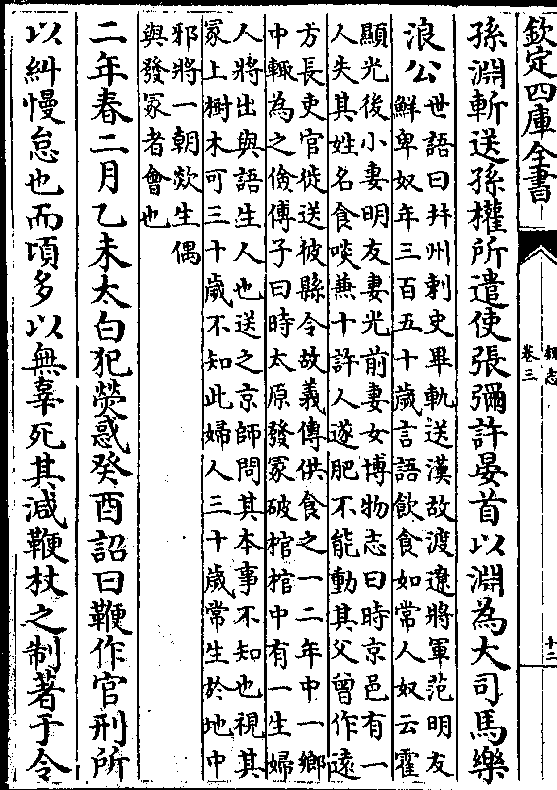 欽定四庫全書
魏志
卷三
十二
孫淵斬送孫權所遣使張彌許晏首以淵為大司馬樂
浪公
世語曰并州刺史畢軌送漢故渡遼將軍范明友
鮮卑奴年三百五十歲言語飲食如常人奴云霍
顯光後小妻明友妻光前妻女博物志曰時京邑有一
人失其姓名食啖兼十許人遂肥不能動其父曾作遠
方長吏官徙送彼縣令故義傳供食之一二年中一鄉
中輙為之儉傅子曰時太原發冢破棺棺中有一生婦
人將出與語生人也送之京師問其本事不知也視其
冢上樹木可三十歲不知此婦人三十歲常生於地中
邪將一朝欻生偶
與發冢者會也
二年春二月乙未太白犯熒惑癸酉詔曰鞭作官刑所
以糾慢怠也而頃多以無辜死其減鞭杖之制著于令